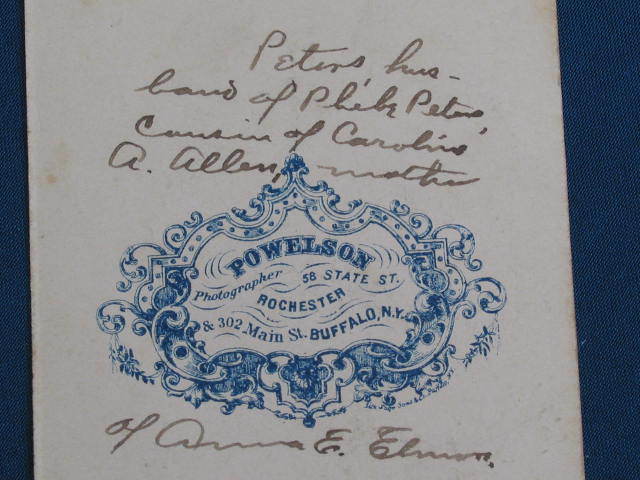 Peters, hus-
band of Phebe Peters,
Cousin of Caroline
A. Allen, mother
POWELSON
Photographer 58 STATE ST.
ROCHESTER
& 302 Main St. BUFFALO, N.Y.
of Anna E.